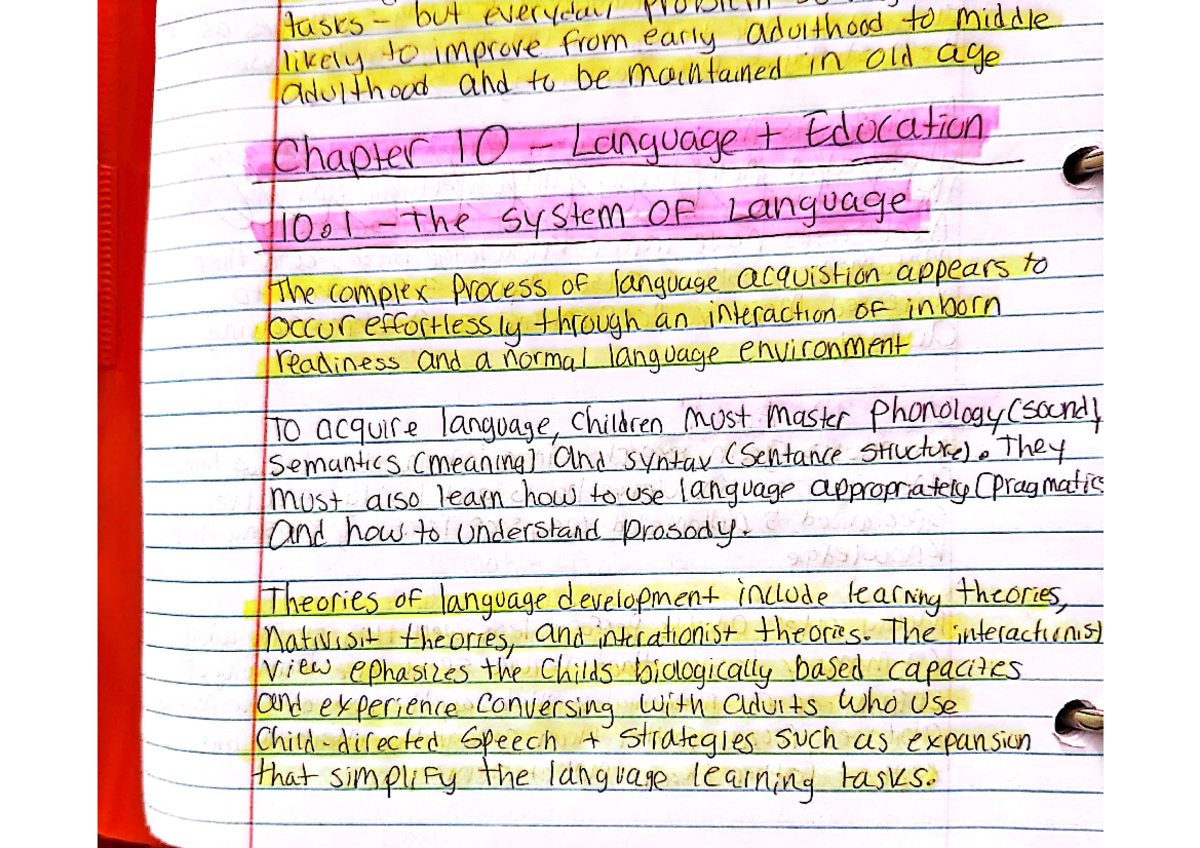 tasks - but everyday
likely to improve from early adulthood to middle
adulthood and to be maintained in old age
Chapter 10 - Language + Education
10.1 - The System OF Language
The complex Process of language acquistion appears to
occur effortlessly through an interaction OF inborn
readiness and a normal language environment
To acquire language, Children must master Phonology (sound),
Semantics (meaning) and syntax (Sentance structure). They
must also learn how to use language appropriately (Pragmatic
and how to understand prosody.
Theories of language development include learning theories,
Nativisit theories, and interationist theories. The interactionist
view ephasizes the Childs biologically based capacites
and experience Conversing with adults who use
Child-directed Speech + strategies such as expansion
that simplify the language learning tasks.